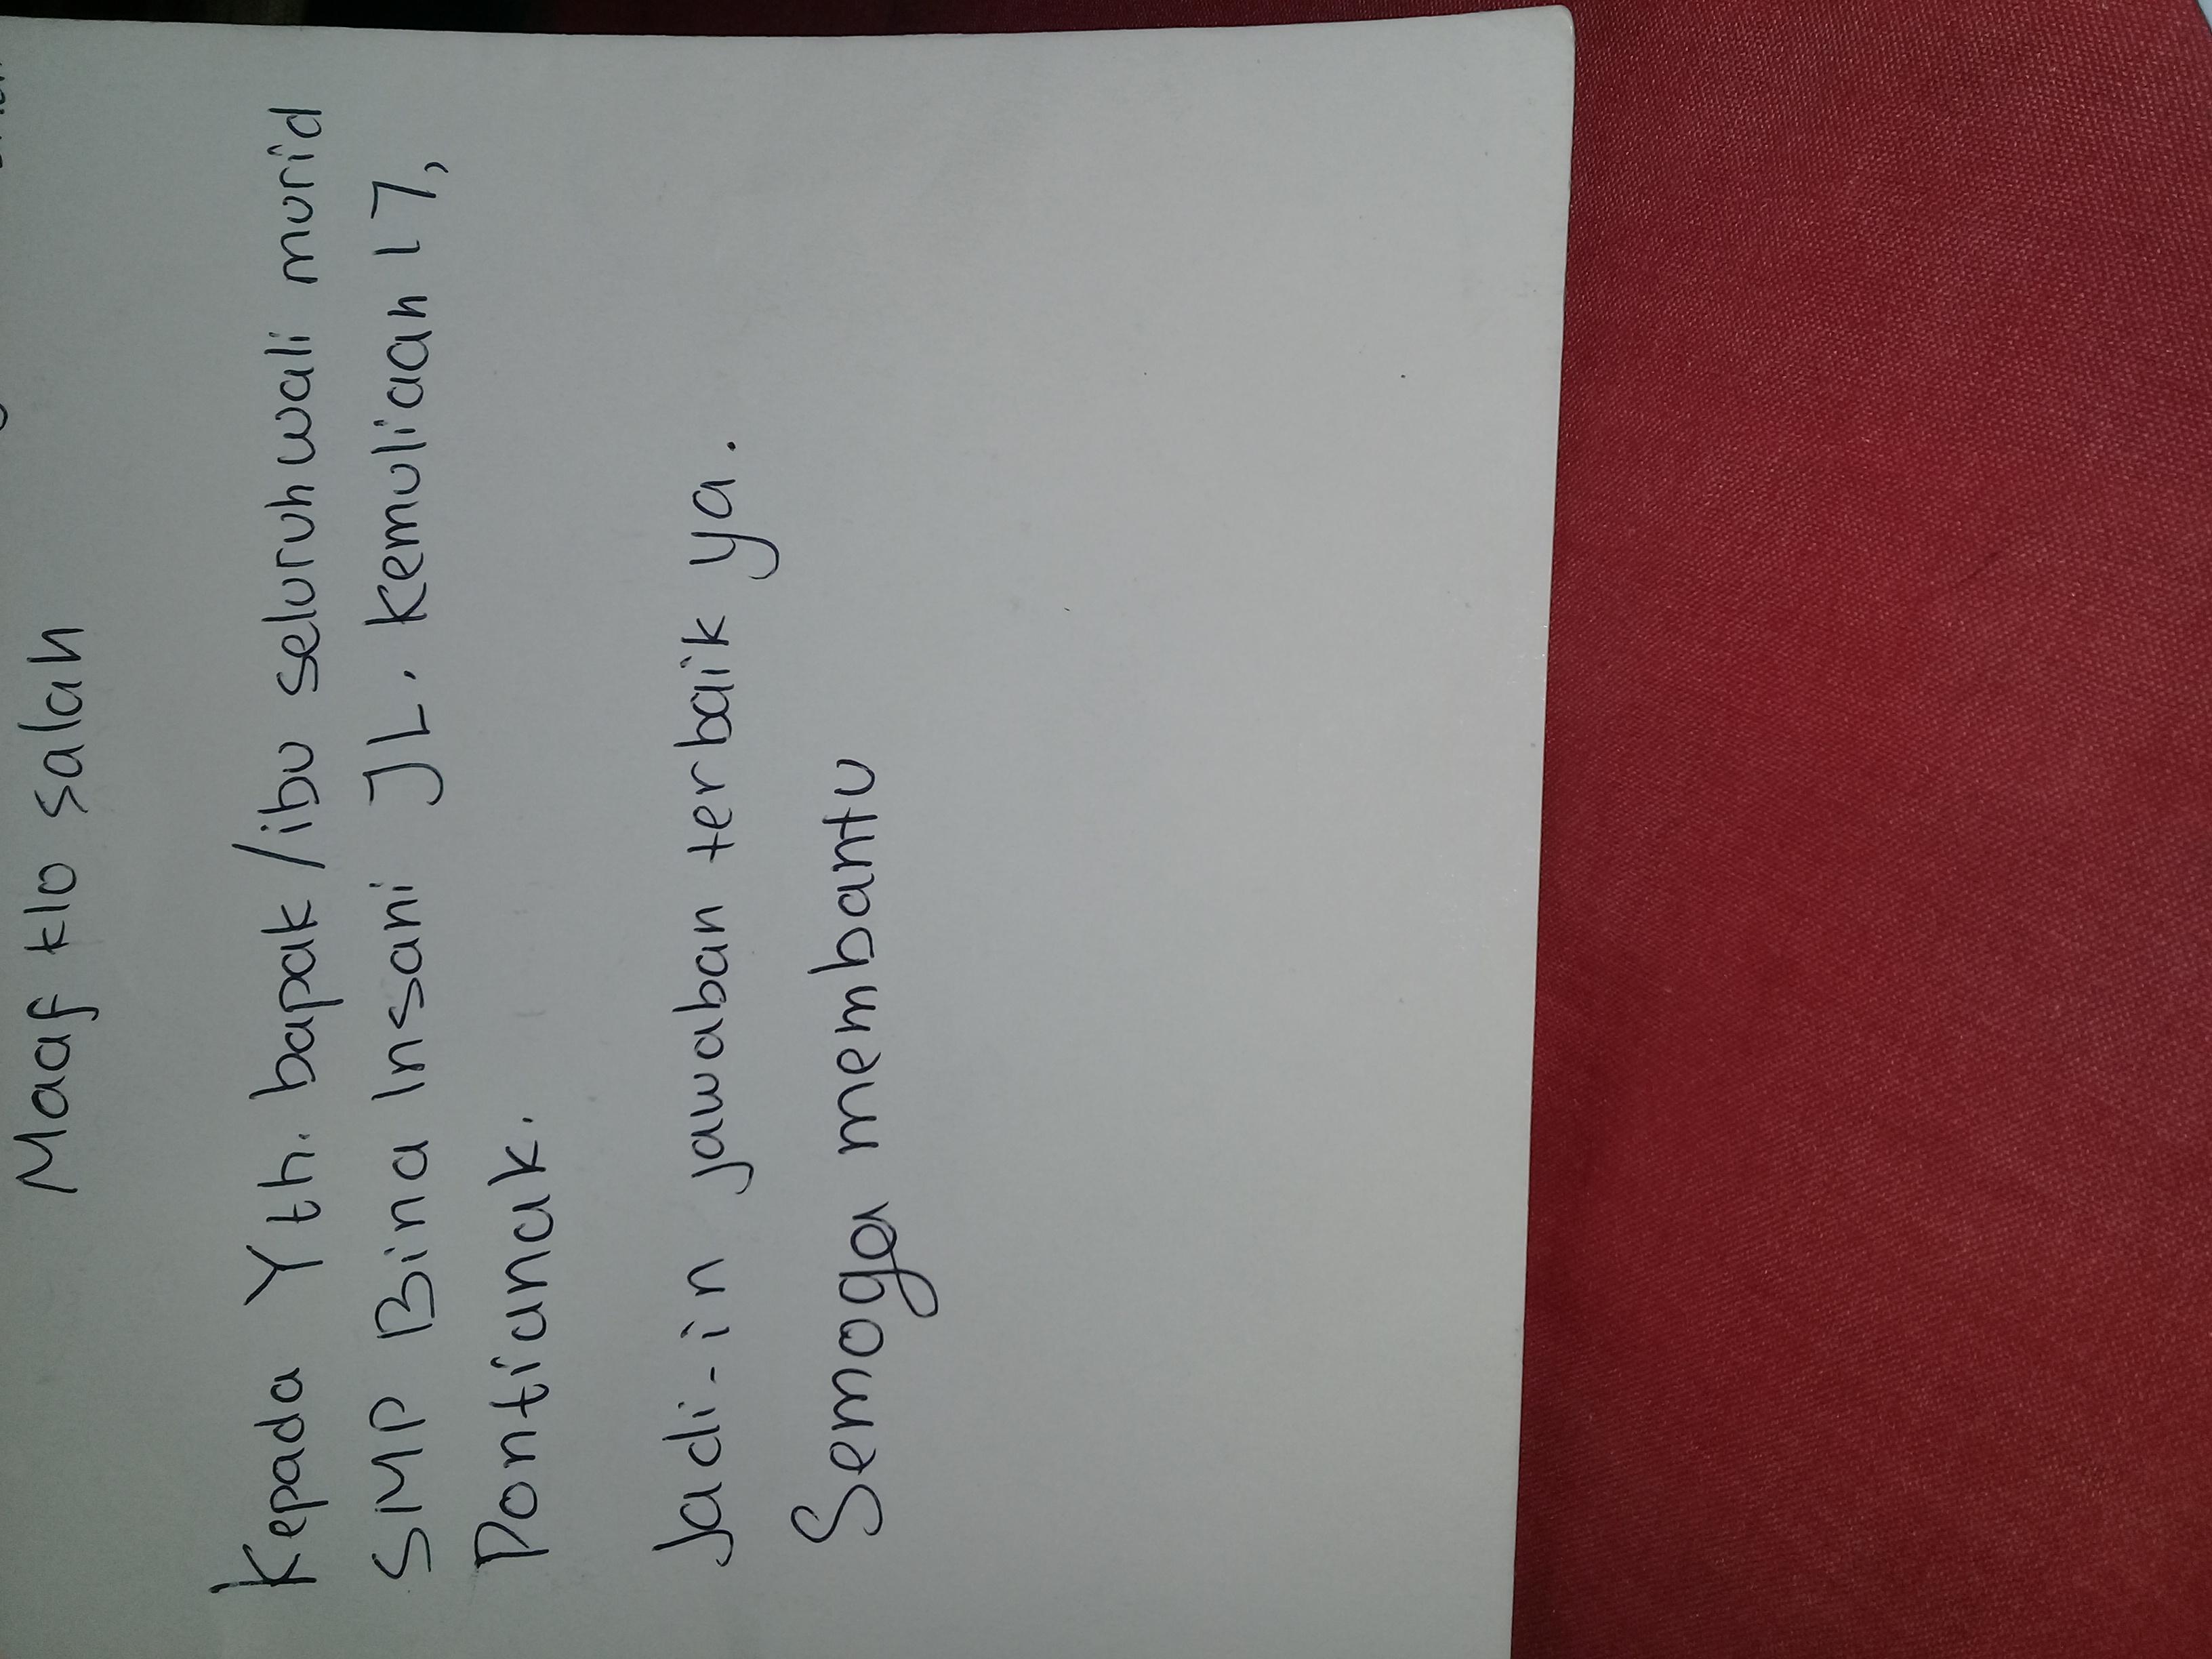 Maaf klo salah
Kepada Yth. bapak/ibu seluruh wali murid
SMP Bina Insani JL. Kemuliaan 17,
Pontianak.
Jadi-in jawaban terbaik ya.
Semoga membantu